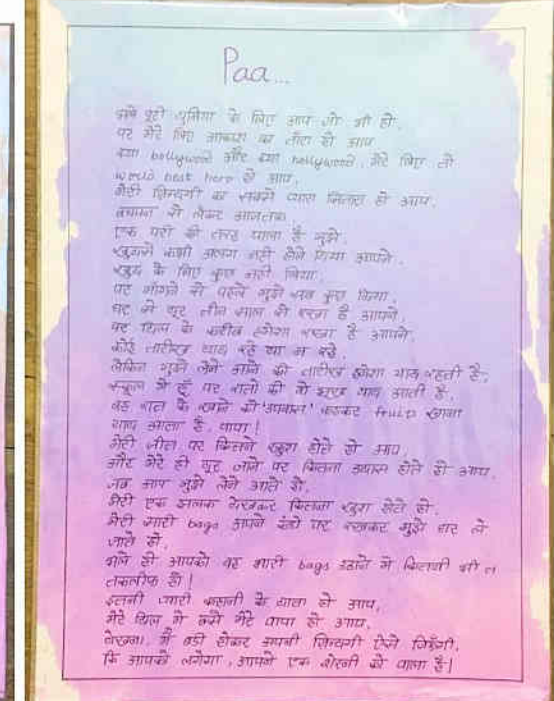 Paa...
पूरी दुनिया के लिए आप जो भी हो,
पर मेरे लिए आकाश का तारा हो आप
क्या bollywood और क्या hollywood, मेरे लिए तो
world best hero हो आप,
मेरी ज़िन्दगी का सबसे प्यारा सितारा हो आप.
बचपन से लेकर आजतक
एक परी की तरह पाला है मुझे,
खुदसे कभी अलग नही होने दिया आपने,
खुद के लिए कुछ नही किया,
पर मांगने से पहले मुझे सब कुछ दिया,
घर से दूर तीन साल से रखा है आपने,
पर दिल के करीब हमेशा रखा है आपने,
कोई तारीख याद रहे या न रहे,
लेकिन मुझे लेने आने की तारीख हमेशा याद रहती है,
स्कूल में हूँ पर रातों की वो भूख याद आती है,
वह रात के खाने को 'उपवास' कहकर fruits खाना
याद आता है, पापा!
मेरी जीत पर कितने खुश होते हो आप,
और मेरे ही दूर जाने पर कितना उदास होते हो आप,
जब आप मुझे लेने आते हो,
मेरी एक झलक देखकर कितना खुश होते हो,
मेरी सारी bags अपने कंधे पर रखकर मुझे घर ले
जाते हो,
भले ही आपको वह भारी bags उठाने में कितनी भी
तकलीफ हो!
इतनी प्यारी कहानी के दाता हो आप,
मेरे दिल में बसे मेरे पापा हो आप,
देखना, मैं बडी होकर अपनी ज़िन्दगी ऐसे जिऊँगी,
कि आपको लगेगा, आपने एक शेरनी को पाला है!